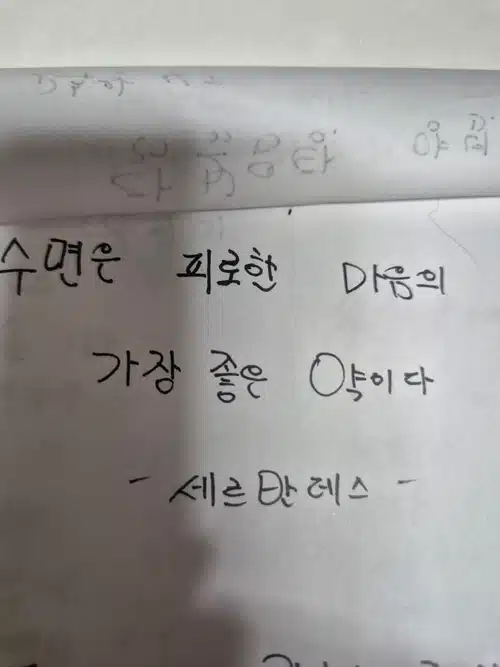 수면은 피로한 마음의
가장 좋은 약이다
- 세르반테스 -